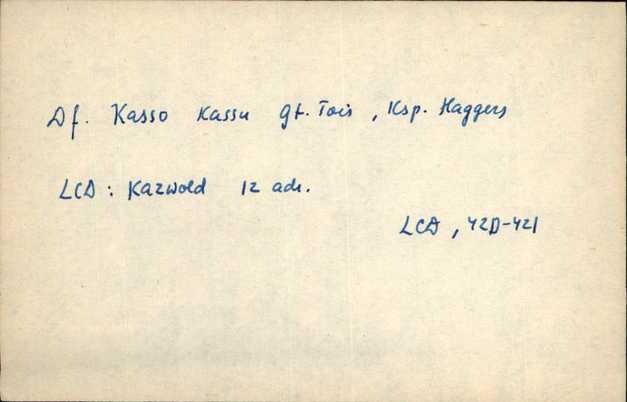 Df. Kasso Kassu gt. Tois, Ksp. Haggers
LCD: Kazwold 12 adr.
LCD, 420-421